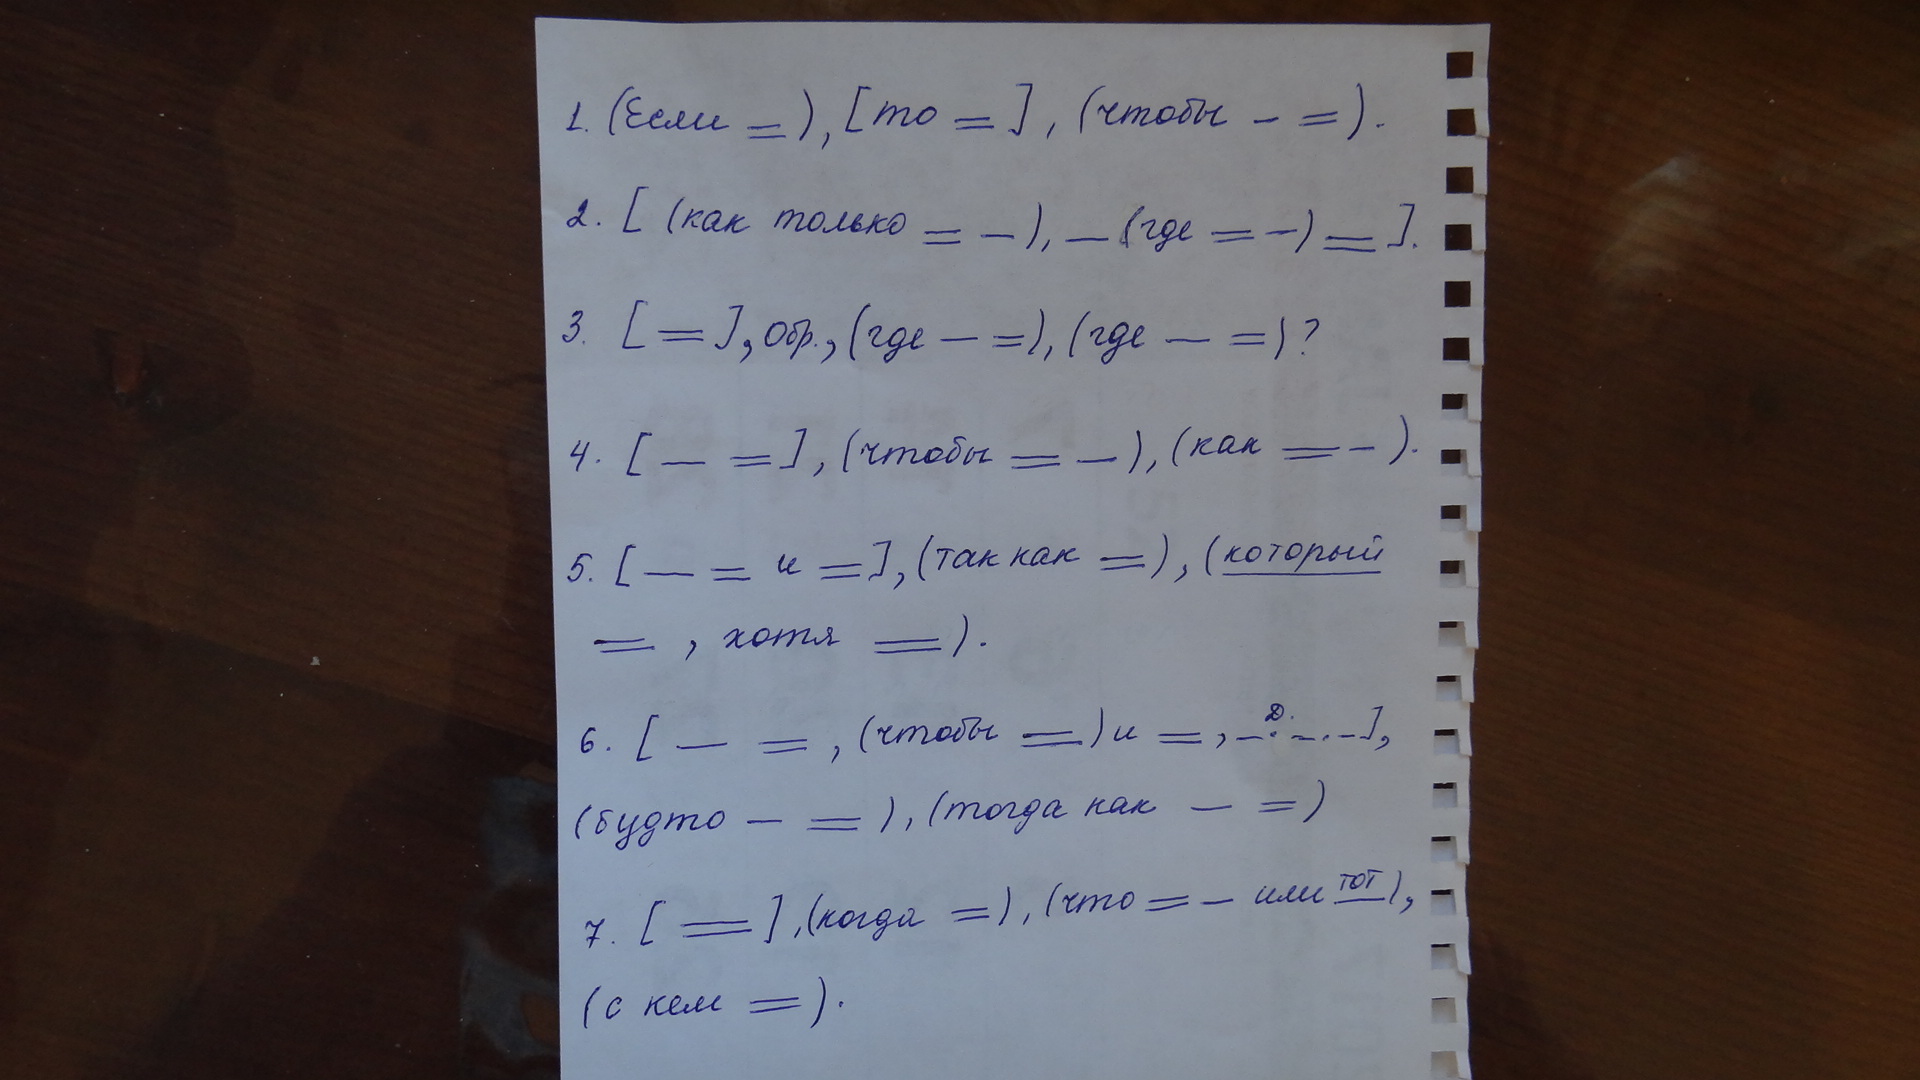 1. (Если =), [то =], (чтобы – =).
2. [(как только = –), – (где = –) =].
3. [=], обр., (где – =), (где – =)?
4. [– =], (чтобы = –), (как = –).
5. [– = и =], (так как =), (который
=, хотя =).
6. [– =, (чтобы =) и =, д. –·–·–],
(будто – =), (тогда как – =)
7. [=], (когда =), (что = – или тот),
(с кем =).